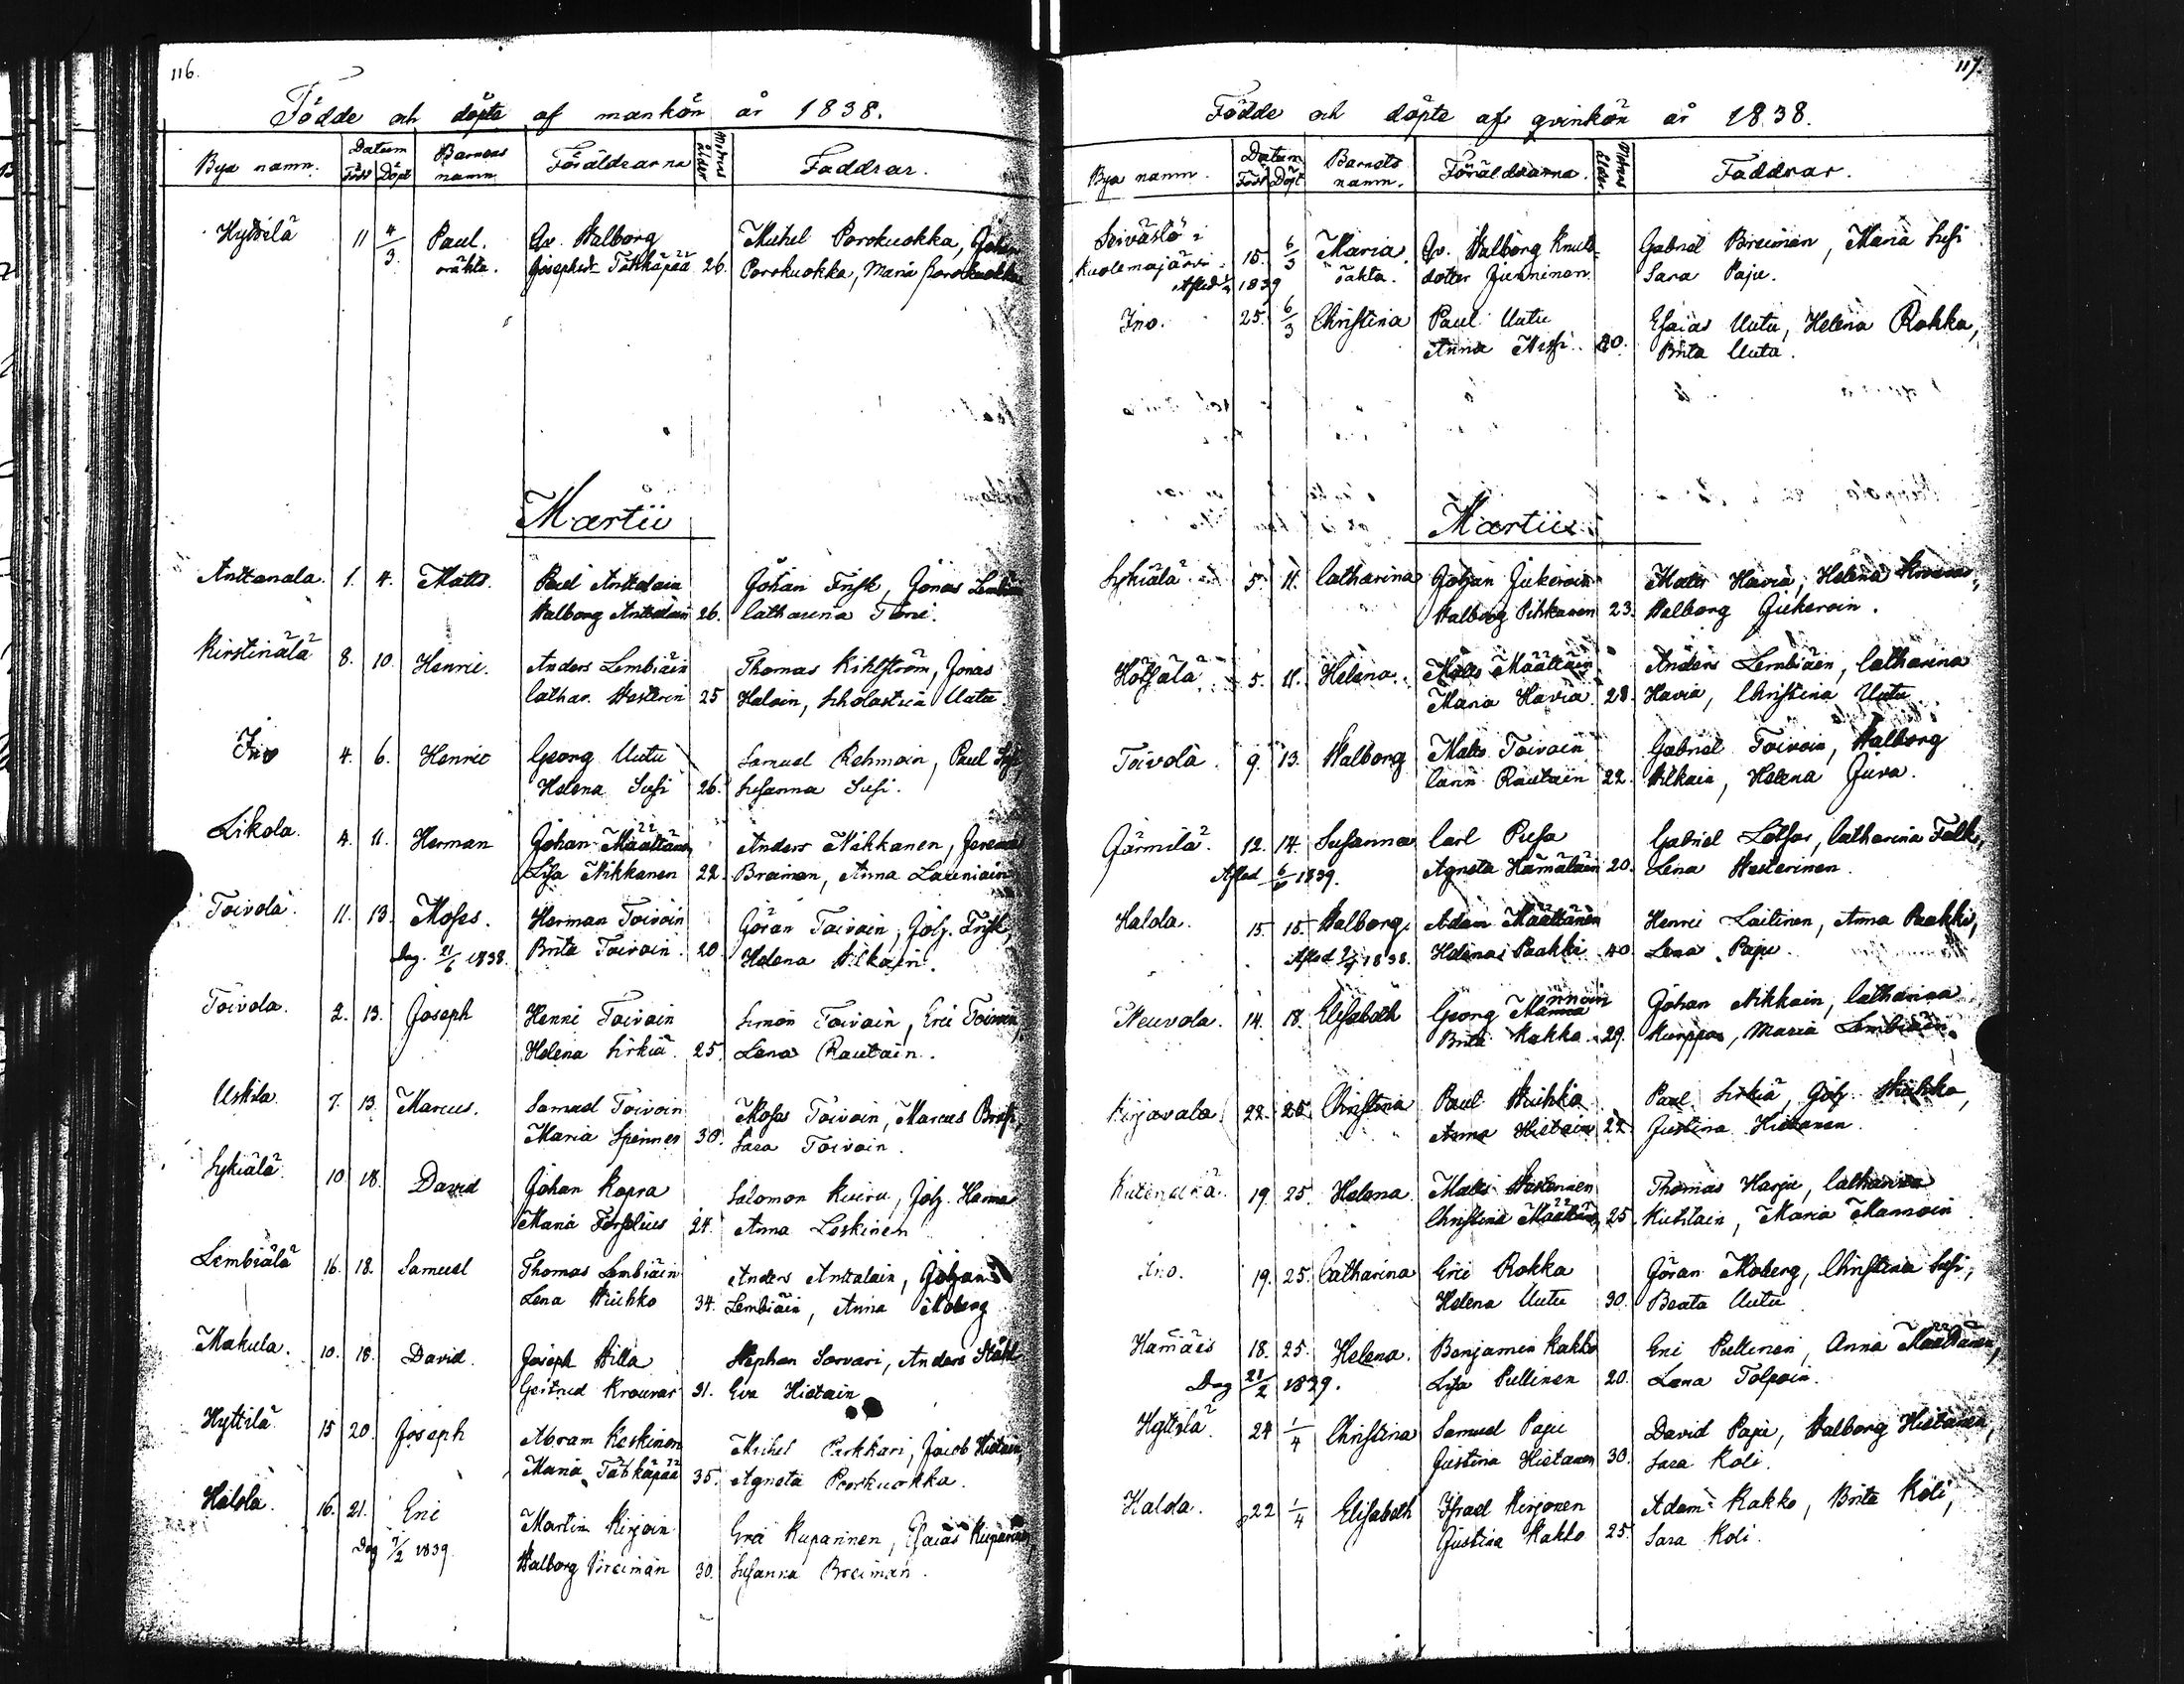 116.
Födde och döpte af mankön år 1838.
Bya namn. Datum Född Döpt Barnens namn Föräldrarna Modrens ålder Faddrar.
Hyttilä 11 4/3 Paul. Qv. Walborg Michel Porokuokka, Johan
oäkta. Josephsd. Tätkäpää 26. Porokuokka, Maria Porokuokka
Martii
Anttanala. 1. 4. Matts. Paul Anttalain Johan Frisk, Jonas
Walborg Anttalain 26. Catharina
Kirstinälä 8. 10. Henric. Anders Lembiäin Thomas Kihlström, Jonas
Cathar. Westerin 25 Halain, Scholastica Uutu.
Ino 4. 6. Henric Georg Uutu Samuel Rehmoin, Paul Susi,
Helena Susi 26. Susanna Susi.
Likola. 4. 11. Herman Johan Määttänen Anders Nikkanen,
Lisa Nikkanen 22. Braiman, Anna
Toivola. 11. 13. Moses. Herman Toivoin Göran Toivoin, Joh. Frisk,
Dog. 21/6 1838. Brita Toivoin. 20. Helena Wilkain.
Toivola. 2. 13. Joseph Henric Toivoin Simon Toivoin, Eric Toivoin,
Helena Sirkiä. 25. Lena Rautain.
Uskila. 7. 13. Marcus. Samuel Toivoin Moses Toivoin, Marcus
Maria Spinner 30. Sara Toivoin.
Sykiälä. 10 18. David Johan Kopra Salomon Kuiru, Joh.
Maria 24. Anna Leskinen
Lembiälä 16. 18. Samuel Thomas Lembiäin Anders Anttalain, Johan
Lena Wiuhko 34. Lembiäin, Anna Moberg
Makula. 10. 18. David. Joseph Willa Stephan Sorvari, Anders Ståhl
Gertrud 31. Eva Hietain
Hyttilä 15 20. Joseph Abram Keskinen Michel Pirkkari, Jacob Hietain,
Maria Tätkäpää 35. Agneta Porokuokka.
Halola. 16. 21. Eric Martin Kirjoin Eric Kuparinen, Esaias Kuparinen
Dog 7/2 1839 Walborg Breiman 30. Susanna Breiman.
117.
Födde och döpte af qvinkön år 1838.
Bya namn. Datum Född Döpt Barnets namn. Föräldrarna. Modrens ålder. Faddrar.
Seivästö i 15. 6/3 Maria. Qv. Walborg Knuts Gabriel Breiman, Maria Susi
Kuolemajärvi. oäkta. dotter Junninen. Sara Paju.
1839
Ino. 25. 6/3 Christina Paul Uutu Esaias Uutu, Helena Rokka,
Anna 20. Brita Uutu.
Martii
Sykiälä 5. 11. Catharina Johan Jukerain Matts Havia, Helena
Walborg Pihkanen 23. Walborg Jukerain.
5. 11. Helena. Matts Määttäin Anders Lembiäen, Catharina
Maria Havia. 28. Havia, Christina Uutu
Toivola. 9. 13. Walborg Matts Toivoin Gabriel Toivoin, Walborg
Carin Rautain 22. Wilkain, Helena Jura.
Järmilä. 12. 14. Susanna Carl Pusa Gabriel Catharina Falk,
Afled 1839. Agneta Hämäläin 20. Lena Westerinen.
Halola. 15 15. Walborg Adam Määttänen Henric Laitinen, Anna Paakki,
Afled 1838. Helena Paakki 40 Lena Paju.
Neuvola. 14. 18. Elisabeth Georg Mannoin Johan Nikkain, Catharina
Brita Kakko. 29. Kurppa, Maria Lembiäin.
Kirjavala 22. 25. Christina Paul Wiuhko Paul Sirkiä, Joh. Wiuhko,
Anna Hietain 22 Justina Hietanen.
19. 25. Helena Matts Westerinen Thomas Harju, Catharina
Christina Määttäin 25. Maria Mannoin
Ino. 19. 25. Catharina Eric Rokka Göran Moberg, Christina Susi,
Helena Uutu 30. Beata Uutu
18. 25. Helena. Benjamin Kakko Eric Pullinen, Anna Määttänen,
Dog 21/2 1839. Lisa Pullinen 20. Lena Tolpoin.
Hyttilä 24 1/4 Christina Samuel Paju David Paju, Walborg Hietanen,
Justina Hietanen 30. Sara Koli.
Halola. 22 1/4 Elisabeth Israel Kirjonen Adam Kakko, Brita Koli,
Justina Kakko 25. Sara Koli.